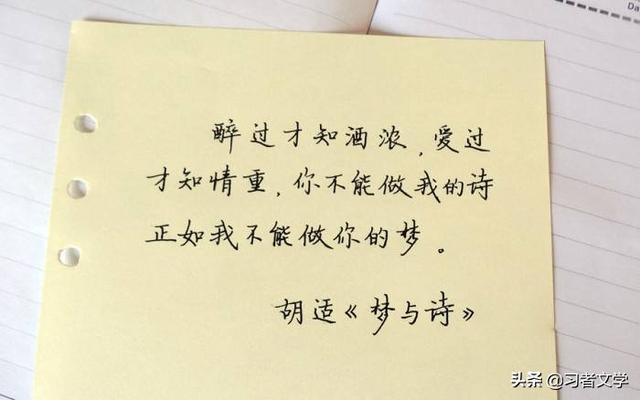 醉过才知酒浓，爱过
才知情重，你不能做我的诗
正如我不能做你的梦。
胡适《梦与诗》
Da
头条 @习者文学